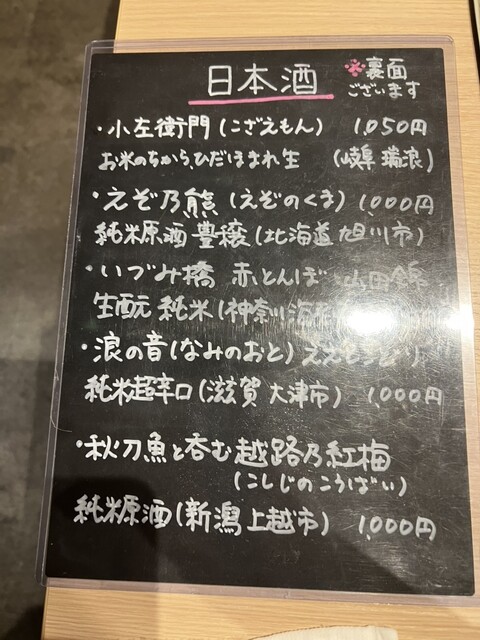 日本酒
※裏面
ございます
・小左衛門(こざえもん) 1,050円
お米のちから、ひだほまれ生 (岐阜 瑞浪)
・えぞ乃熊(えぞのくま) 1,000円
純米原酒 豊穣(北海道旭川市)
・いづみ橋 赤とんぼ 山田錦
生酛 純米(神奈川海老
・浪の音(なみのおと)ええとこどり
純米超辛口(滋賀 大津市) 1,000円
・秋刀魚と呑む越路乃紅梅
(こしじのこうばい)
純米原酒(新潟上越市) 1,000円